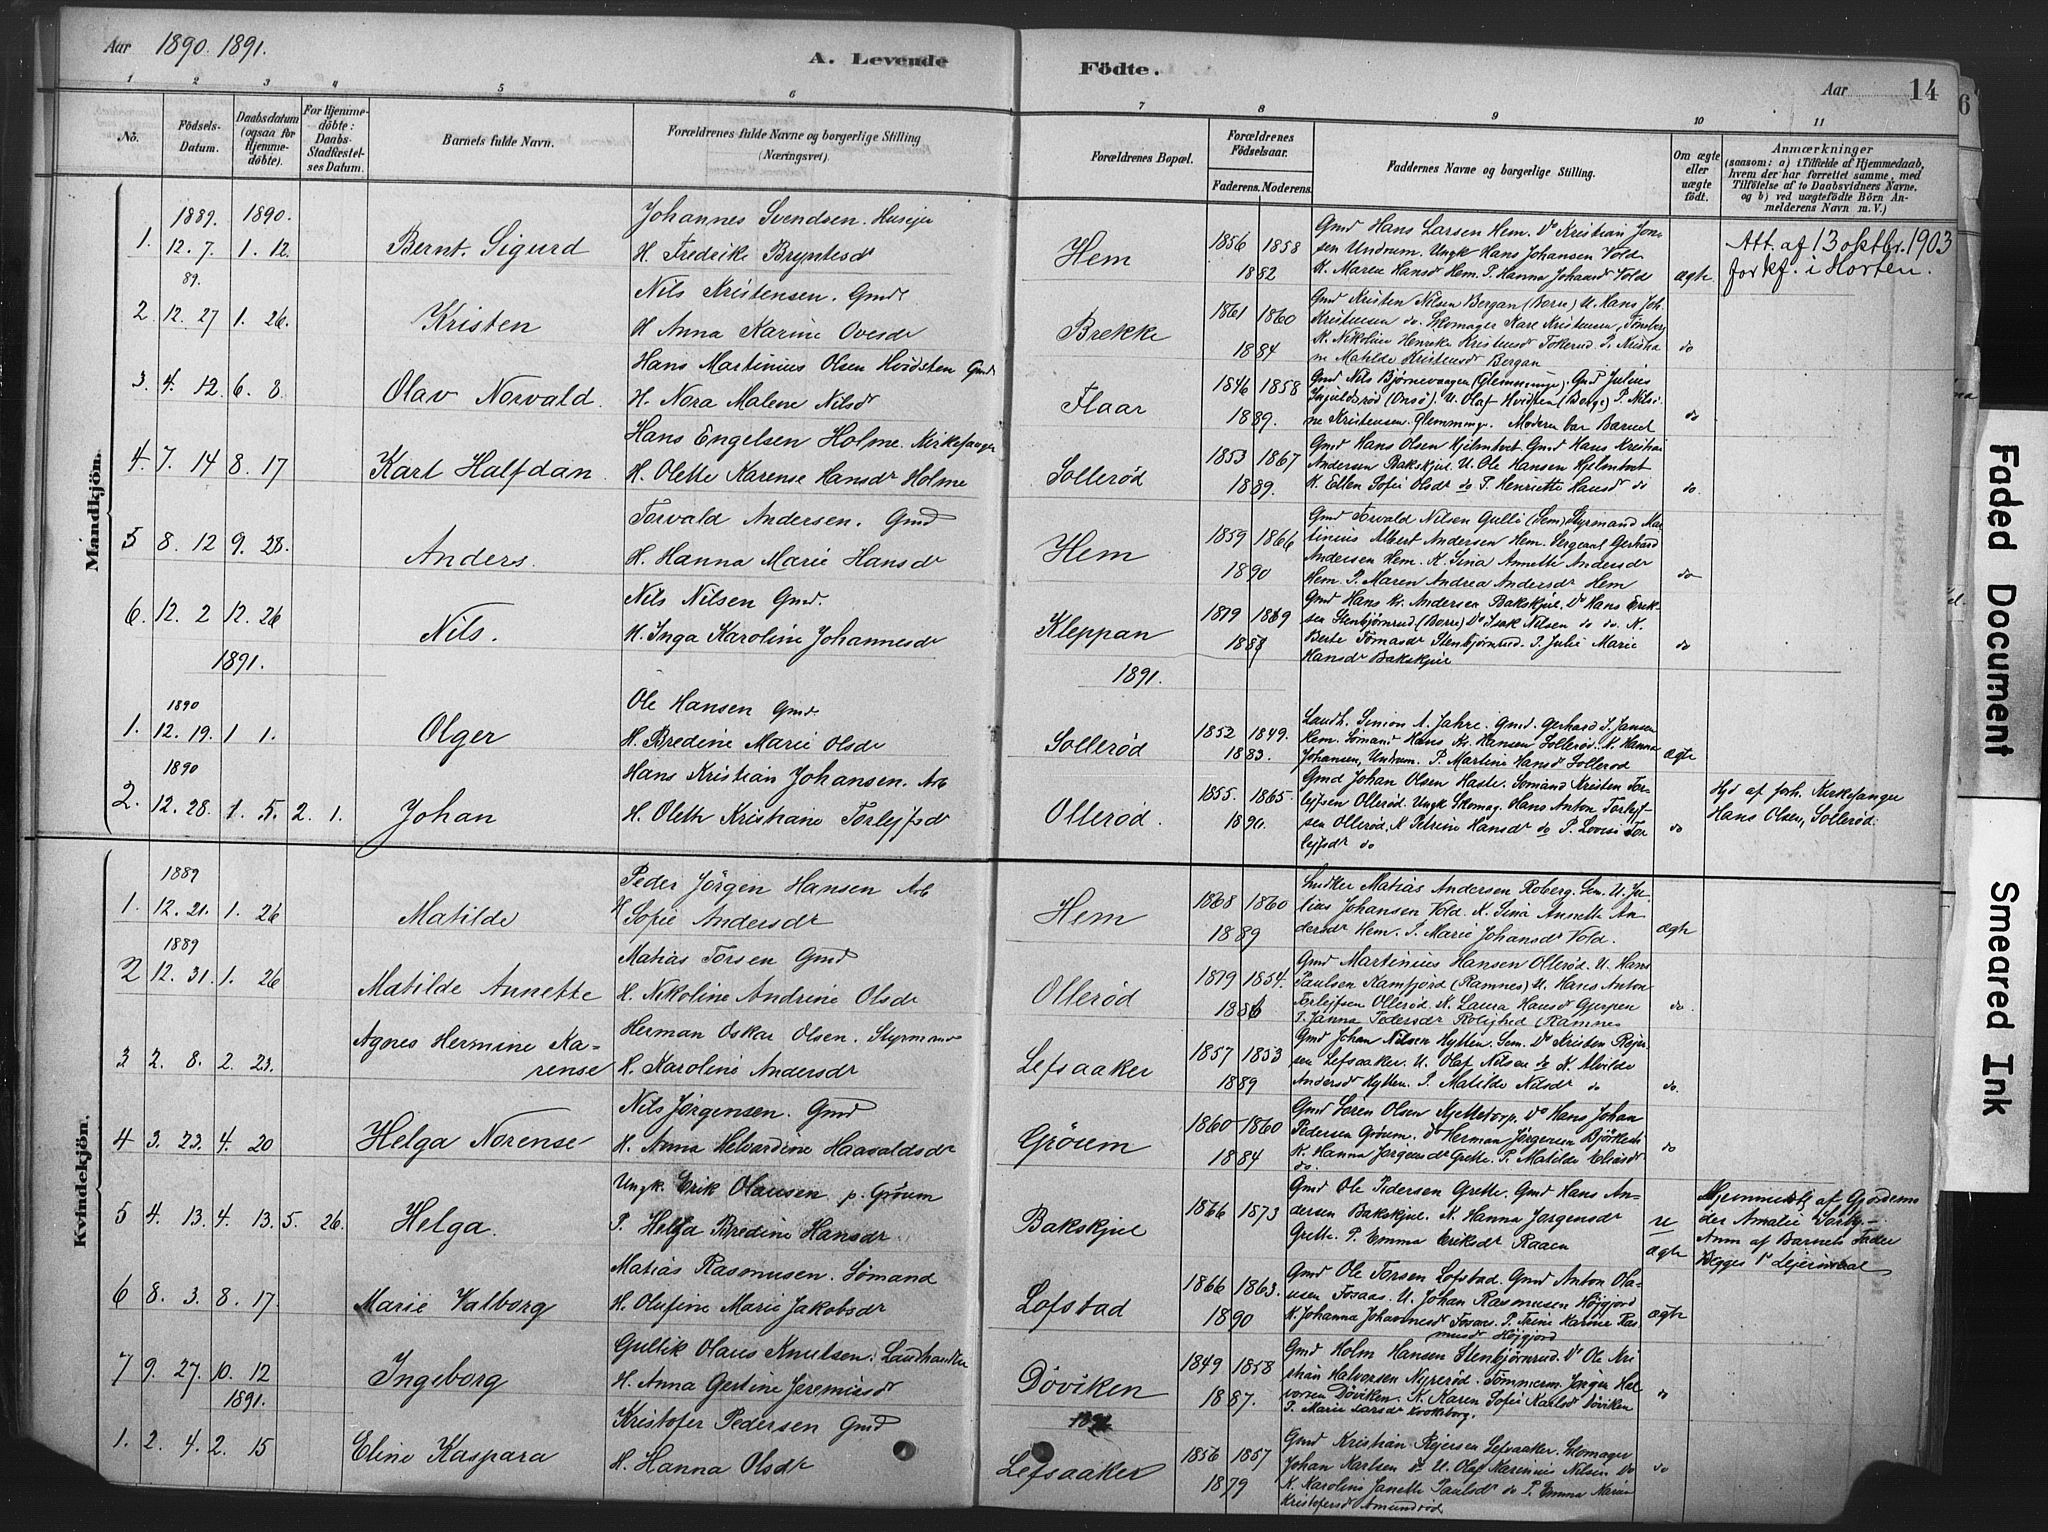 Aar 1890. 1891.
A. Levende Födte.
Aar 14
1 2 3 4 5 6 7 8 9 10 11
No.
Födsels-Datum.
Daabsdatum (ogsaa for Hjemme-döbte).
For Hjemme-döbte: Daabs-Stadfæstel-ses Datum.
Barnets fulde Navn.
Forældrenes fulde Navne og borgerlige Stilling (Næringsvei).
Forældrenes Bopæl.
Forældrenes Födselsaar.
Faderens. Moderens.
Faddernes Navne og borgerlige Stilling.
Om ægte eller uægte født.
Anmærkninger
(saasom: a) i Tilfælde af Hjemmedaab, hvem der har forrettet samme, med Tilföielse af to Daabsvidners Navne. og b) ved uægtefödte Börn An-melderens Navn m. V.)
Mandkjön.
1889. 1890.
1. 12. 7. 1. 12. Bernt Sigurd
Johannes Svendsen. Huseier
H. Fredrike Bryntesdr
Hem
1856 1858
1882
Gmd Hans Larsen Hem. Do Kristian Jon-
sen Undrum. Ungk Hans Johansen Vold
K. Maren Hansdr Hem. P. Hanna Johansdr Vold
ægte
Att. af 13 oktbr. 1903
for kf. i Horten.
89.
2. 12. 27 1. 26. Kristen
Nils Kristensen. Gmd
H. Anna Karine Ovesdr
Brekke
1861 1860
1884
Gmd Kristen Nilsen Bergan (Borre) U. Hans Joh.
Kristensen do. Skomager Karl Kristensen, Tönsberg
K. Nikoline Henrike Kristensdr Tokerud. P. Kristia
ne Matilde Kristensdr Bergan
do
3. 4. 12. 6. 8. Olav Norvald.
Hans Martinius Olsen Hvidsten Gmd
H. Nora Malene Nilsdr
Flaar
1846 1858
1889.
Gmd Nils Bjørnevaagen (Glemminge). Gmd Julius
Ingjuldsrød (Onsö). U. Olaf Hvidsten (Berge) P. Nilsi-
ne Kristensen. Glemminge. Moderen bar Barnet
do
4. 7. 14 8. 17 Karl Halfdan
Hans Engelsen Holme. Kirkesanger
H. Olette Karense Hansdr Holme
Sollerød
1853 1867
1889.
Gmd Hans Olsen Hjelmtvet Gmd Hans Kristian
Andersen Bakskjul. U. Ole Hansen Hjelmtvet
K. Ellen Sofie Olsdr do P. Henriette Hansdr do
do.
5 8. 12 9. 28. Anders.
Torvald Andersen. Gmd
H. Hanna Marie Hansdr
Hem
1859 1866
1890
Gmd Torvald Nilsen Gulli (Sem) Styrmand Mar-
tinius Albert Andersen Hem. Sergeant Gerhard
Andersen Hem. K. Sina Annette Andersdr
Hem. P. Maren Andrea Andersdr Hem
do
6. 12. 2 12. 26 Nils.
Nils Nilsen Gmd.
H. Inga Karoline Johannesdr
Kleppan
1879 1869
1888
Gmd Hans Kr. Andersen Bakskjul. Do Hans Erik-
sen Stenbjørnrud (Borre) Do Isak Nilsen do do. K.
Berte Tomasdr Stenbjørnrud. P. Julie Marie
Hansdr Bakskjul
do
1891. 1891.
1890
1. 12. 19. 1 1. Olger
Ole Hansen Gmd.
H. Bredine Marie Olsdr
Sollerød
1852 1849.
1883.
Landh. Simon A. Jahre. Gmd. Gerhard S. Jansen
Hem. Sømand Hans Kr. Hansen Sollerød. K. Hanna
Johansen, Undrum. P. Martine Hansdr Sollerød
ægte
1890
2. 12. 28. 1. 5. 2. 1. Johan
Hans Kristian Johansen. Arb
H. Olette Kristiane Torlejfsdr
Ollerød.
1855. 1865.
1890.
Gmd Johan Olsen Hasle. Sømand Kristen Tor-
lejfsen Ollerød. Ungk Skomag. Hans Anton Torlejf-
sen Ollerød. K Petrine Hansdr do P. Lovise Tor-
lejfsdr do
do
Hjd af forh. Kirkesanger
Hans Olsen, Sollerød.
Kvindekjön.
1889
1. 12. 21. 1. 26 Matilde
Peder Jörgen Hansen Arb
H Sofie Andersdr
Hem
1868 1860
1889
Snedker Matias Andersen Roberg. Sem. U. Ju-
lius Johansen Vold. K. Sina Annette An-
dersdr Hem. P. Marie Johansdr Vold.
ægte
1889
2 12. 31. 1. 26 Matilde Annette
Matias Torsen Gmd
H. Nikoline Andrine Olsdr
Ollerød
1879 1854.
1886
Gmd Martinius Hansen Ollerød. U. Hans
Paulsen Kamfjord (Ramnes) U. Hans Anton
Torlejfsen Ollerød. K. Laura Hansdr Gjerpen
P. Janna Pedersdr Rolighed (Ramnes
do.
3 2. 8. 2. 23. Agnes Hermine Ka-
rense
Herman Oskar Olsen. Styrmand
H. Karoline Andersdr
Lefsaaker
1857 1853
1889
Gmd Johan Nilsen Hytten. Sem. Do Kristen Rejer-
sen Lefsaaker. U. Olaf Nilsen do K. Alvilde
Andersdr Hytten. P. Matilde Nilsdr do
do.
4 3. 23. 4. 20 Helga Norense
Nils Jörgensen. Gmd
H. Anna Helvardine Haavaldsdr
Grörem
1860 1860
1884
Gmd Søren Olsen Kjettetorp. Do Hans Johan
Pedersen Grörem. do Herman Jörgensen
K. Hanna Jørgensdr Grette. P. Matilde Eliasdr
do.
do
5 4. 13. 4. 13. 5. 26. Helga.
Ungk. Erik Olausen p. Gröum
P. Helga Bredine Hansdr
Bakskjul
1866 1873
Gmd Ole Pedersen Grette. Gmd Hans An-
dersen Bakskjul. K. Hanna Jørgensdr
Grette. P. Emma Eriksdr Raaen
u
ægte
Hjemmedøbt af Gjordemo
der Amalie
Anm af Barnets Fader
Begges 1' Lejermaal
6 8. 3. 8. 17. Marie Valborg
Matias Rasmusen. Sömand
H. Olufine Marie Jakobsdr
Lofstad
1866 1863.
1890
Gmd Ole Torsen Lofstad. Gmd Anton Ola-
usen Fosaas. U. Johan Rasmusen Højgjord
K. Johanna Johannesdr Fosaas. P. Trine Karine Ras
musdr Højgjord
ægte
7 9. 27. 10. 12 Ingeborg
Gullik Olaus Knutsen. Landhandler
H. Anna Gertine Jeremiasdr
Döviken
1849 1858
1887.
Gmd Holm Hansen Stenbjørnrud. Do Ole Kri
stian Halvorsen Nyrerød. Tömmerm. Jørgen Hal
vorsen Döviken. K. Karen Sofie Karlsdr Döviken
P. Marie Larsdr Krokeborg.
do
1891. 1891
1. 2. 4. 2. 15 Eline Kaspara
Kristofer Pedersen Gmd
H. Hanna Olsdr
Lefsaaker
1856 1857
1879
Gmd Kristian Rejersen Lefsaaker. Skomager
Johan Karlsen do U. Olaf Marinius Nilsen Do
K. Karoline Janette Paulsdr do P. Emma Marie
Kristofersdr Amundrød
do
Faded Document
Smeared Ink